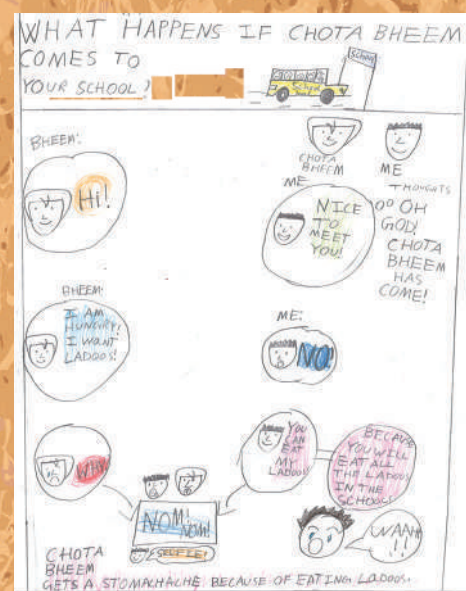 WHAT HAPPENS IF CHOTA BHEEM
COMES TO
YOUR SCHOOL?
SCHOOL
CHOTA
BHEEM
ME
BHEEM:
Hi!
ME
NICE
TO
MEET
YOU!
THOUGHTS
OH
GOD!
CHOTA
BHEEM
HAS
COME!
BHEEM:
I AM
HUNGRY!
I WANT
LADOOS!
ME:
NO!
WHY
BECAUSE
YOU WILL
EAT ALL
THE LADOOS
IN THE
SCHOOL
YOU
CAN
EAT
MY
LADOOS
NOM!
NOM!
SELFIE!
WAAH
!!
CHOTA
BHEEM
GETS A STOMACHACHE BECAUSE OF EATING LADOOS.